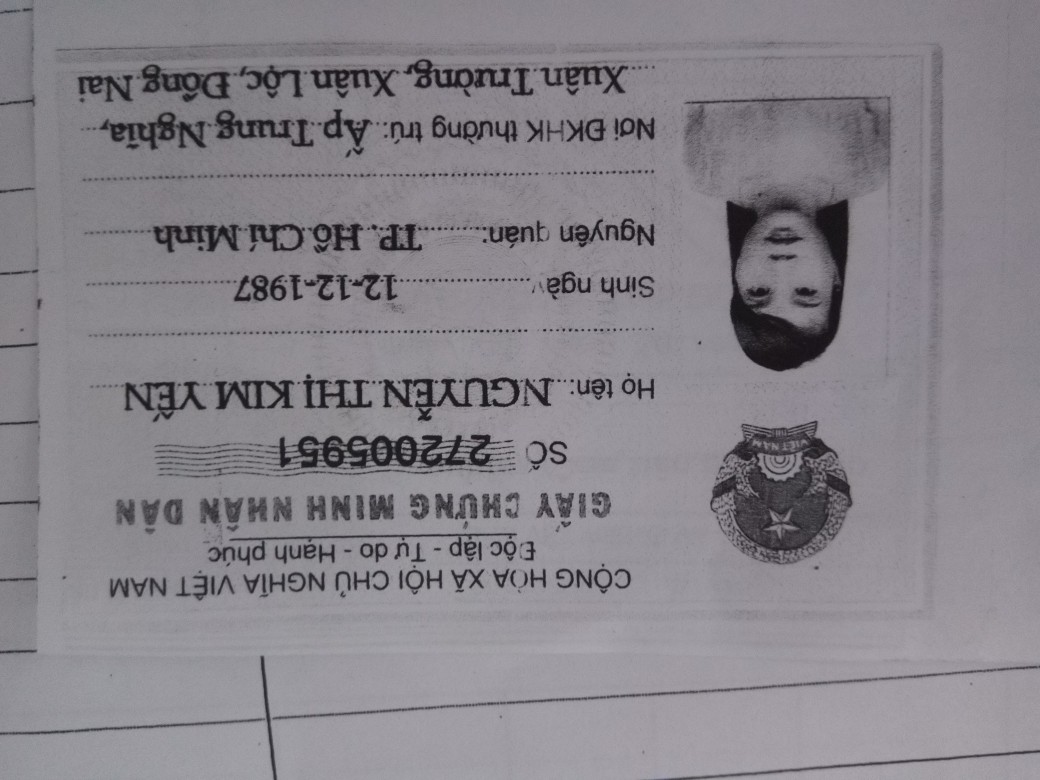 CỘNG HÒA XÃ HỘI CHỦ NGHĨA VIỆT NAM
Độc lập - Tự do - Hạnh phúc
GIẤY CHỨNG MINH NHÂN DÂN
SỐ 272005951
Họ tên: NGUYỄN THỊ KIM YẾN
Sinh ngày 12-12-1987
Nguyên quán: TP. Hồ Chí Minh
Nơi ĐKHK thường trú: Ấp Trung Nghĩa,
Xuân Trường, Xuân Lộc, Đồng Nai
VIỆT NAM